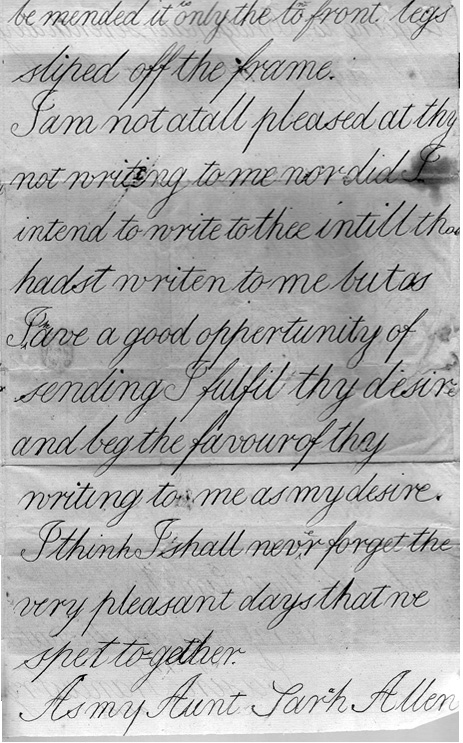 be mended it only the to front legs
sliped off the frame.
I am not at all pleased at thy
not writing to me nor did I
intend to write to thee intill thou
hadst writen to me but as
I ave a good oppertunity of
sending I fulfil thy desire
and beg the favour of thy
writing to me as my desire.
I think I shall never forget the
very pleasant days that we
spet together.
As my Aunt Sarh Allen